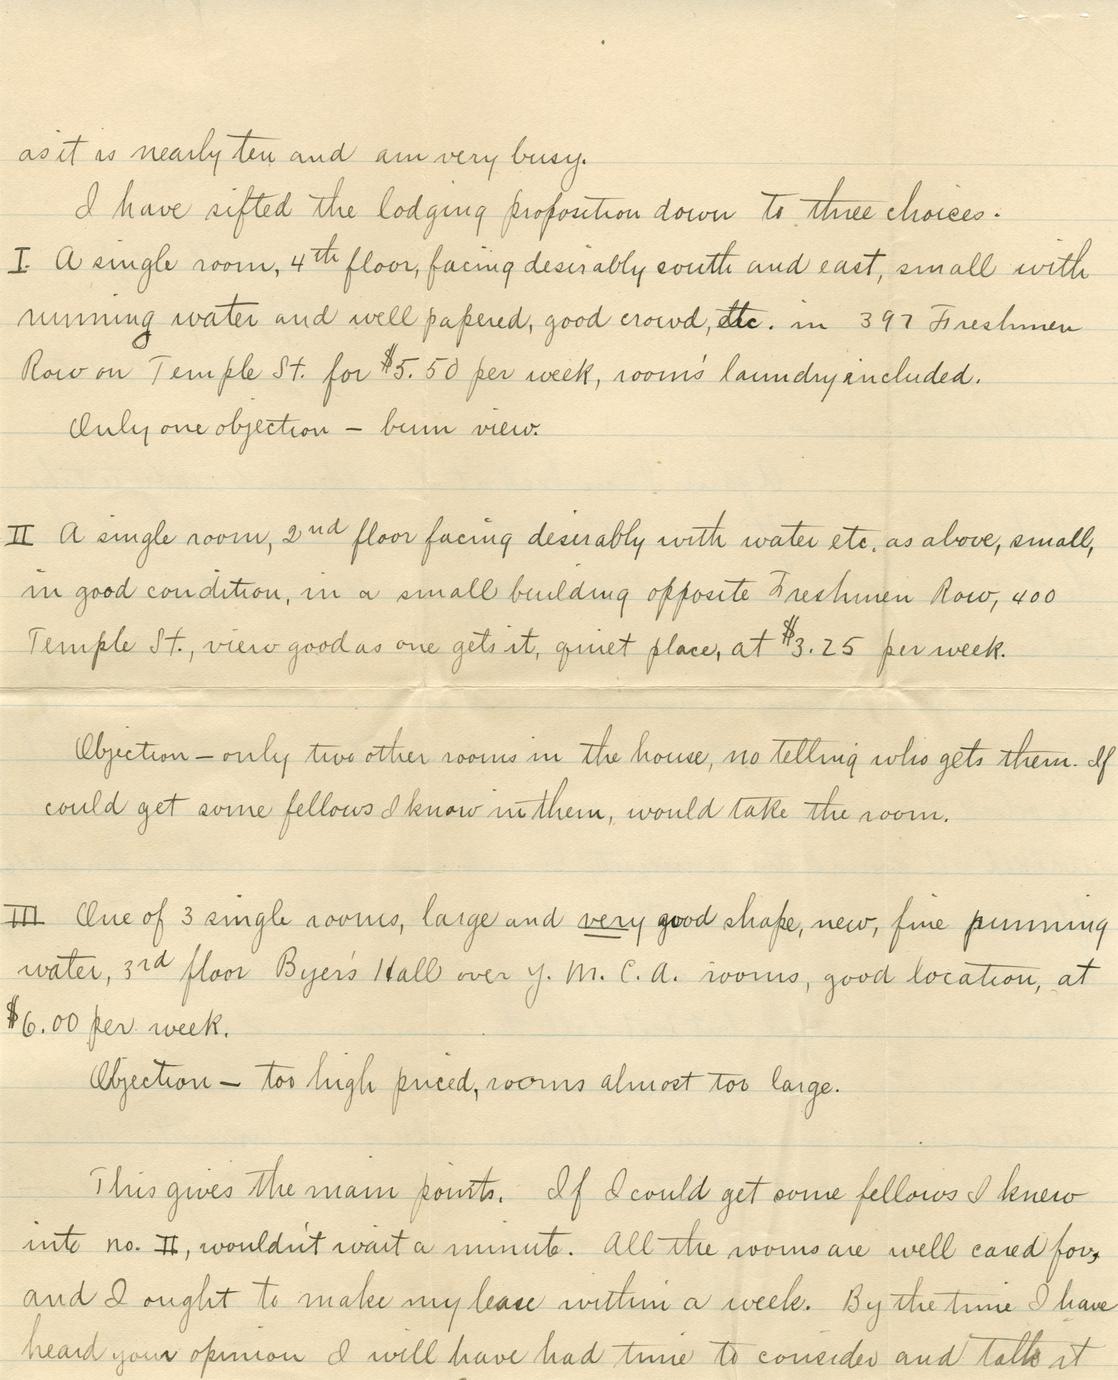 as it is nearly ten and am very busy.
I have sifted the lodging proposition down to three choices.
I. A single room, 4th floor, facing desirably south and east, small with
running water and well papered, good crowd, etc. in 397 Freshmen
Row on Temple St. for $5.50 per week, room's laundry included.
Only one objection – bum view.
II A single room, 2nd floor facing desirably with water etc. as above, small,
in good condition, in a small building opposite Freshmen Row, 400
Temple St., view good as one gets it, quiet place, at $3.25 per week.
Objection – only two other rooms in the house, no telling who gets them. If
could get some fellows I know in them, would take the room.
III One of 3 single rooms, large and very good shape, new, fine running
water, 3rd floor Byer's Hall over Y. M. C. A. rooms, good location, at
$6.00 per week.
Objection – too high priced, rooms almost too large.
This gives the main points. If I could get some fellows I knew
into no. II, wouldn't wait a minute. All the rooms are well cared for,
and I ought to make my lease within a week. By the time I have
heard your opinion I will have had time to consider and talk it